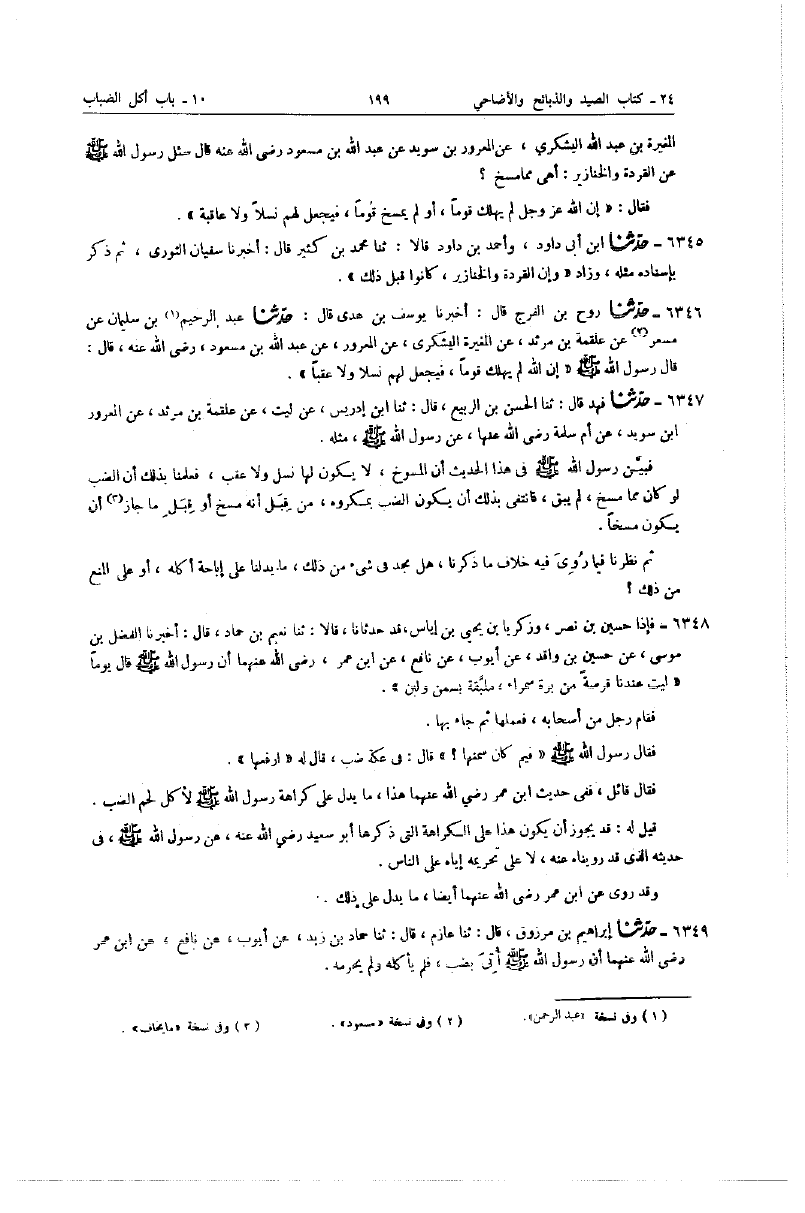 ٢٤ ـ كتاب الصيد والذبائح والأضاحي ١٩٩ ١٠ ـ باب أكل الضباب
المغيرة بن عبد الله اليشكري ، عن المعرور بن سويد عن عبد الله بن مسعود رضى الله عنه قال سئل رسول الله ﷺ
عن القردة والخنازير : أهى مما مسخ ؟
فقال : « إن الله عز وجل لم يهلك قوماً ، أو لم يمسخ قوماً ، فيجعل لهم نسلاً ولا عاقبة » .
٦٣٤٥ ـ حدّثنا ابن أبى داود ، وأحمد بن داود قالا : ثنا محمد بن كثير قال : أخبرنا سفيان الثورى ، ثم ذكر
بإسناده مثله ، وزاد « وإن القردة والخنازير ، كانوا قبل ذلك » .
٦٣٤٦ ـ حدّثنا روح بن الفرج قال : أخبرنا يوسف بن عدى قال : حدّثنا عبد الرحيم(١) بن سليمان عن
مسعر(٢) عن علقمة بن مرثد ، عن المغيرة اليشكرى ، عن المعرور ، عن عبد الله بن مسعود ، رضى الله عنه ، قال :
قال رسول الله ﷺ « إن الله لم يهلك قوماً ، فيجعل لهم نسلا ولا عقباً » .
٦٣٤٧ ـ حدّثنا فهد قال : ثنا الحسن بن الربيع ، قال : ثنا ابن إدريس ، عن ليث ، عن علقمة بن مرثد ، عن المعرور
ابن سويد ، عن أم سلمة رضى الله عنها ، عن رسول الله ﷺ ، مثله .
فبيّن رسول الله ﷺ فى هذا الحديث أن المسوخ ، لا يكون لها نسل ولا عقب ، فعلمنا بذلك أن الضب
لو كان مما مسخ ، لم يبق ، فانتفى بذلك أن يكون الضب بمكروه ، من قِبَل أنه مسخ أو قِبَل ما جاز(٣) أن
يكون مسخاً .
ثم نظرنا فيما رُوِىَ فيه خلاف ما ذكرنا ، هل نجد فى شىء من ذلك ، ما يدلنا على إباحة أكله ، أو على المنع
من ذلك ؟
٦٣٤٨ ـ فإذا حسين بن نصر ، وزكريا بن يحيى بن إياس، قد حدثانا ، قالا : ثنا نعيم بن حماد ، قال : أخبرنا الفضل بن
موسى ، عن حسين بن واقد ، عن أيوب ، عن نافع ، عن ابن عمر ، رضى الله عنهما أن رسول الله ﷺ قال يوماً
« ليت عندنا قرصةً من برة سمراء ، ملبَّقة بسمن ولبن » .
فقام رجل من أصحابه ، فعملها ثم جاء بها .
فقال رسول الله ﷺ « فيم كان سمنها ؟ » قال : فى عكة ضب ، قال له « ارفعها » .
فقال قائل ، ففى حديث ابن عمر رضي الله عنهما هذا ، ما يدل على كراهة رسول الله ﷺ لأكل لحم الضب .
قيل له : قد يجوز أن يكون هذا على الكراهة التى ذكرها أبو سعيد رضي الله عنه ، عن رسول الله ﷺ ، فى
حديثه الذى قد رويناه عنه ، لا على تحريمه إياه على الناس .
وقد روى عن ابن عمر رضي الله عنهما أيضا ، ما يدل على ذلك .
٦٣٤٩ ـ حدّثنا إبراهيم بن مرزوق ، قال : ثنا عارم ، قال : ثنا حماد بن زيد ، عن أيوب ، عن نافع ، عن ابن عمر
رضي الله عنهما أن رسول الله ﷺ أُتِىَ بضب ، فلم يأكله ولم يحرمه .
(١) وفى نسخة «عبد الرحمن». (٢) وفى نسخة «مسعود» . (٣) وفى نسخة «مايخاف» .